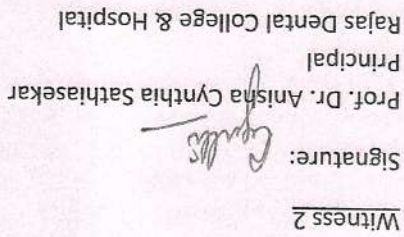 Witness 2
Signature:
Prof. Dr. Anisha Cynthia Sathiasekar
Principal
Rajas Dental College & Hospital